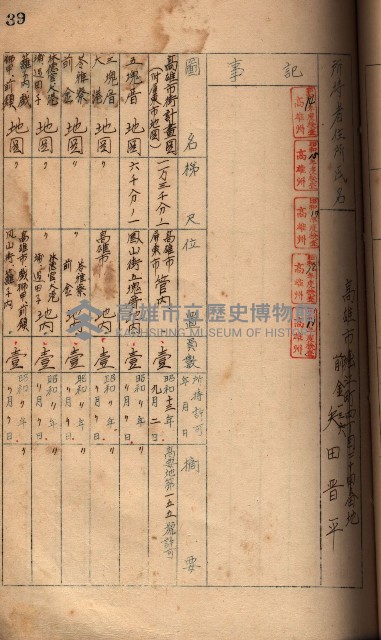 39
所持者住所氏名
高雄市
前金
矢田晋平
記事
高雄州
高雄州
高雄州
高雄州
高雄州
圖名
梯尺
位置
員數
所持許可年月日
摘要
高雄市街計畫圖
(附屏東市地圖)
一万三千分ノ一
高雄市
屏東市
管內
壹
昭和十三年
九月二日
高要地第一五五號許可
五塊厝地圖
六千分ノ一
鳳山街五塊厝地内
壹
昭和〃年
〃月〃日
〃
三塊厝
大港
地圖
〃
高雄市
地内
壹
昭和〃年
〃月〃日
〃
苓雅寮
前金
地圖
〃
苓雅寮
前金
地内
壹
昭和〃年
〃月〃日
〃
林德官大港
街道田子
地圖
〃
林德官大港
街道田子
地内
壹
昭和〃年
〃月〃日
〃
籬子内戲
獅甲前鎮
地圖
〃
高雄市戲獅甲前鎮
鳳山街籬子内
壹
昭和〃年
〃月〃日
〃
高雄市立歷史博物館
KAOHSIUNG MUSEUM OF HISTORY